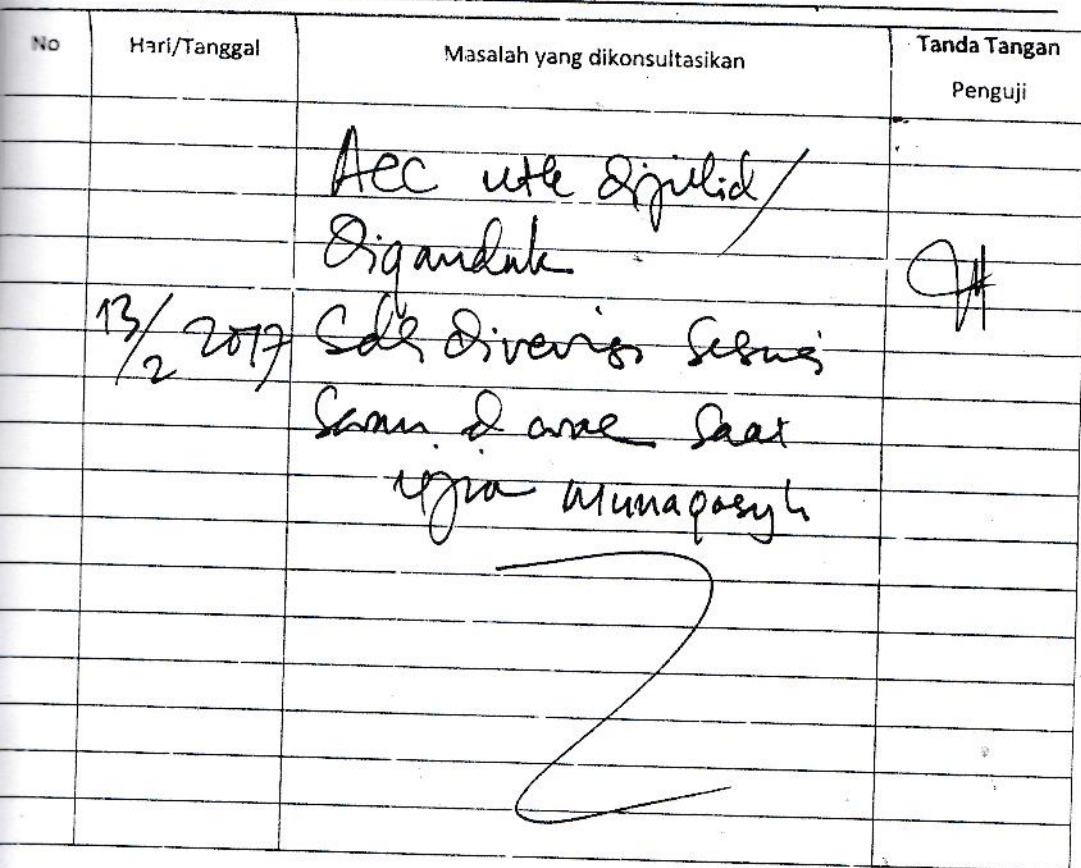 No Hari/Tanggal Masalah yang dikonsultasikan Tanda Tangan
Penguji
Acc utk dijilid/
Digandak
13/2 2017 Sdh direvisi sesuai
Saran & arah saat
ujian munaqasyh